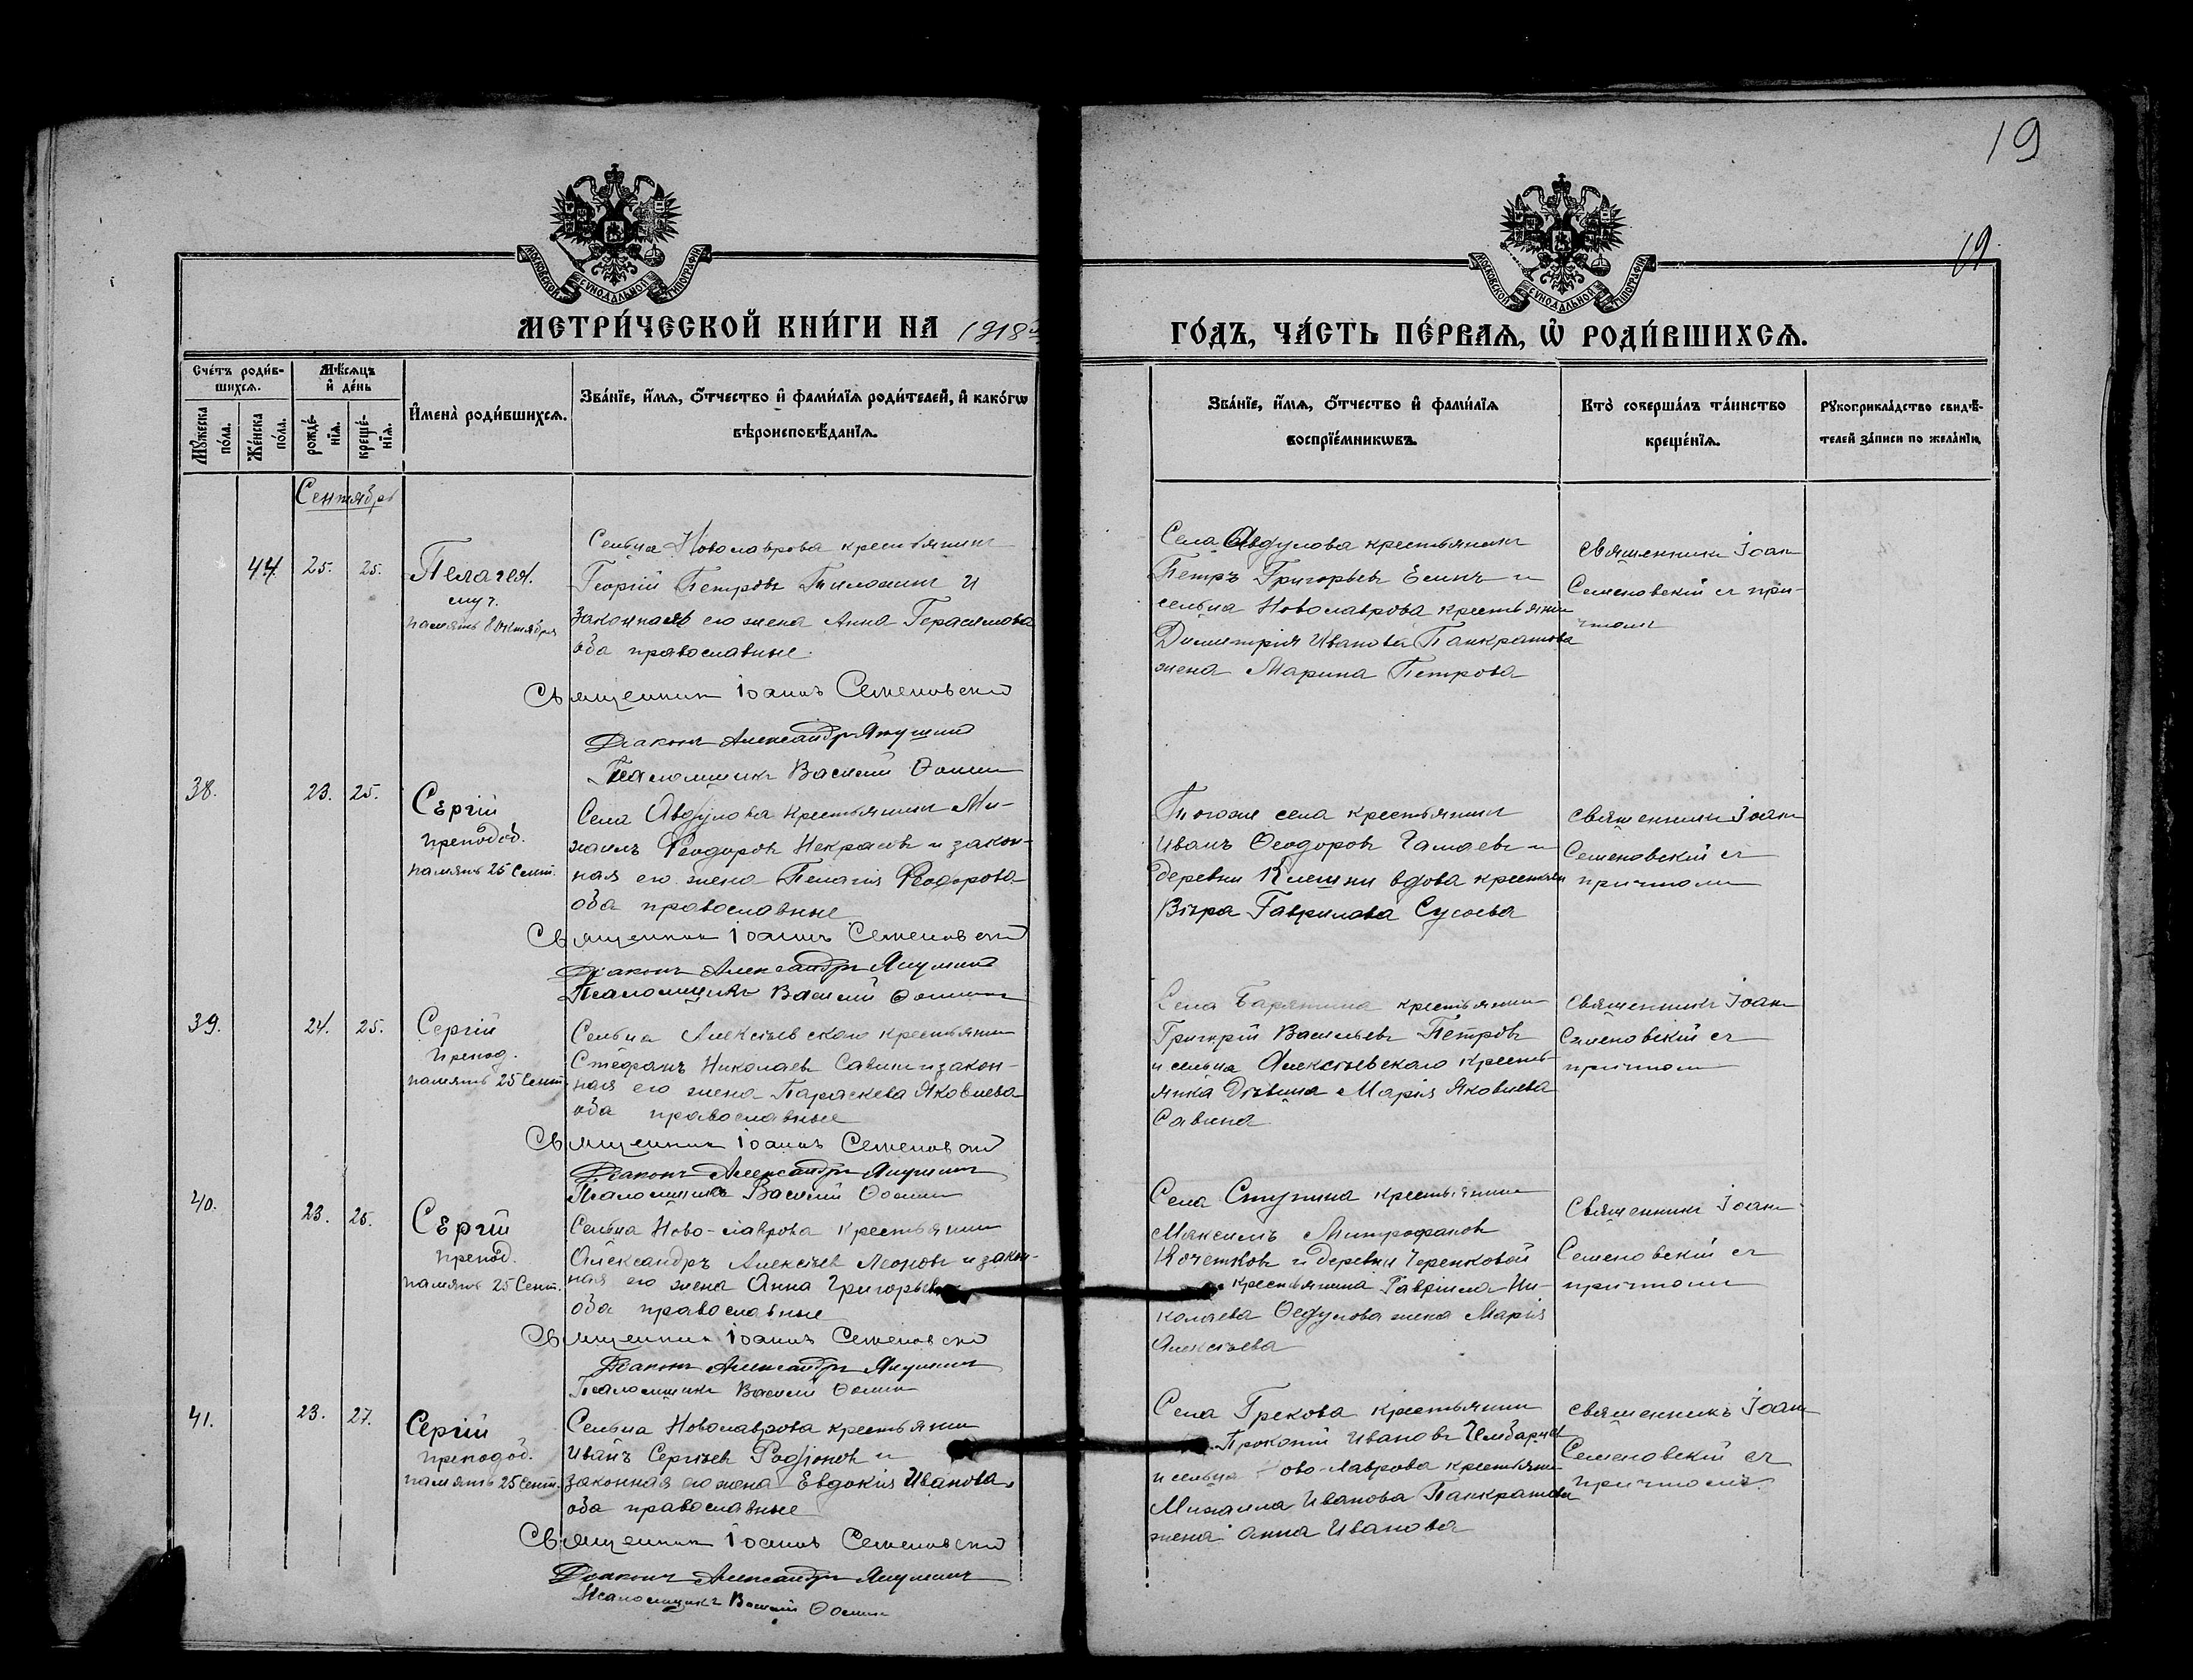 19
19
МОСКОВСКОЙ СѴНОДАЛЬНОЙ ТИПОГРАФІИ
МОСКОВСКОЙ СѴНОДАЛЬНОЙ ТИПОГРАФІИ
МЕТРИ́ЧЕСКОЙ КНИ́ГИ НА 1918
ГО́ДЪ, ЧА́СТЬ ПЕ́РВАѦ, Ѡ҆ РОДИ́ВШИХСѦ.
Сче́тъ роди́в-
шихсѧ.
Мѣ́сѧцъ
и҆ де́нь
Мꙋ́жеска
по́ла.
Же́нска
по́ла.
рожде́-
нїѧ.
креще́-
нїѧ.
И҆мена̀ роди́вшихсѧ.
Зва́нїе, и҆́мѧ, ѻ҆́тчество и҆ фами́лїѧ роди́телей, и҆ како́гѡ
вѣроисповѣ́данїѧ.
Зва́нїе, и҆́мѧ, ѻ҆́тчество и҆ фами́лїѧ
воспрїе́мникѡвъ.
Кто̀ соверша́лъ та́инство
креще́нїѧ.
Рꙋкоприкла́дство свидѣ́-
телей за́писи по жела́нїю.
Сентябрь
44. 25. 25.
Пелагея.
муч.
память 8 Октября
Сельца Новолаврова крестьянинъ
Георгій Петровъ и
законная его жена Анна Герасимова
оба православные.
Священникъ Іоаннъ Семеновскій
Діаконъ Александръ Якушин
Псаломщикъ Василій Ѳомин
Села Авдулова крестьянинъ
Петръ Григорьевъ Есинъ и
сельца Новолаврова крестьянин
Димитрія Иванова Панкратова
жена Марина Петрова
Священникъ Іоан
Семеновскій съ при-
чтомъ
38. 23. 25.
Сергій
препо́доб.
память 25 Сент.
Села Авдулова крестьянинъ Ми-
хаилъ Ѳеодоровъ Некрасовъ и закон-
ная его жена Пелагія Ѳеодорова
оба православные
Священникъ Іоаннъ Семеновскій
Діаконъ Александръ Якушин
Псаломщикъ Василій Ѳомин
Того же села крестьянинъ
Иванъ Ѳеодоровъ и
деревни Клешни вдова крестьян
Вѣра Гаврилова Сусоева
Священникъ Іоан
Семеновскій съ
причтомъ
39. 24. 25.
Сергій
Препод.
память 25 Сент.
Сельца Алексѣевскаго крестьянин
Стефанъ Николаевъ Савин и закон-
ная его жена Параскева Яковлева
оба православные
Священникъ Іоаннъ Семеновскій
Діаконъ Александръ Якушин
Псаломщикъ Василій Ѳомин
Села Барятина крестьянин
Григорій Васильевъ Петровъ
и сельца Алексѣевскаго кресть-
янка Дѣвица Марія Яковлева
Савина
Священникъ Іоан
Семеновскій съ
причтом
40. 23. 25.
Сергій
препод.
память 25 Сент.
Сельца Ново-лаврова крестьянин
Александръ Алексѣев Леонов и закон-
ная его жена Анна Григорьев
оба православные
Священникъ Іоаннъ Семеновскій
Діаконъ Александръ Якушин
Псаломщикъ Василій Ѳомин
Села Ступина крестьянин
Максимъ Митрофанов
Кочетковъ и деревни Черенковой
крестьянина Гавріила Ни-
колаева Ѳедулова жена Марія
Алексѣева
Священникъ Іоан
Семеновскій съ
причтом
41. 23. 27.
Сергій
преподоб.
память 25 Сент.
Сельца Новолаврова крестьянин
Иванъ Сергѣев Родіонов и
законная его жена Евдокія Иванова,
оба православные
Священникъ Іоаннъ Семеновскій
Діаконъ Александръ Якушин
Псаломщикъ Василій Ѳомин
Села Грекова крестьянин
Прокопій Ивановъ
и сельца ово-лаврова крестьян
Михаила Иванова Панкратова
жена Анна Иванова
Священникъ Іоан
Семеновскій съ
причтомъ